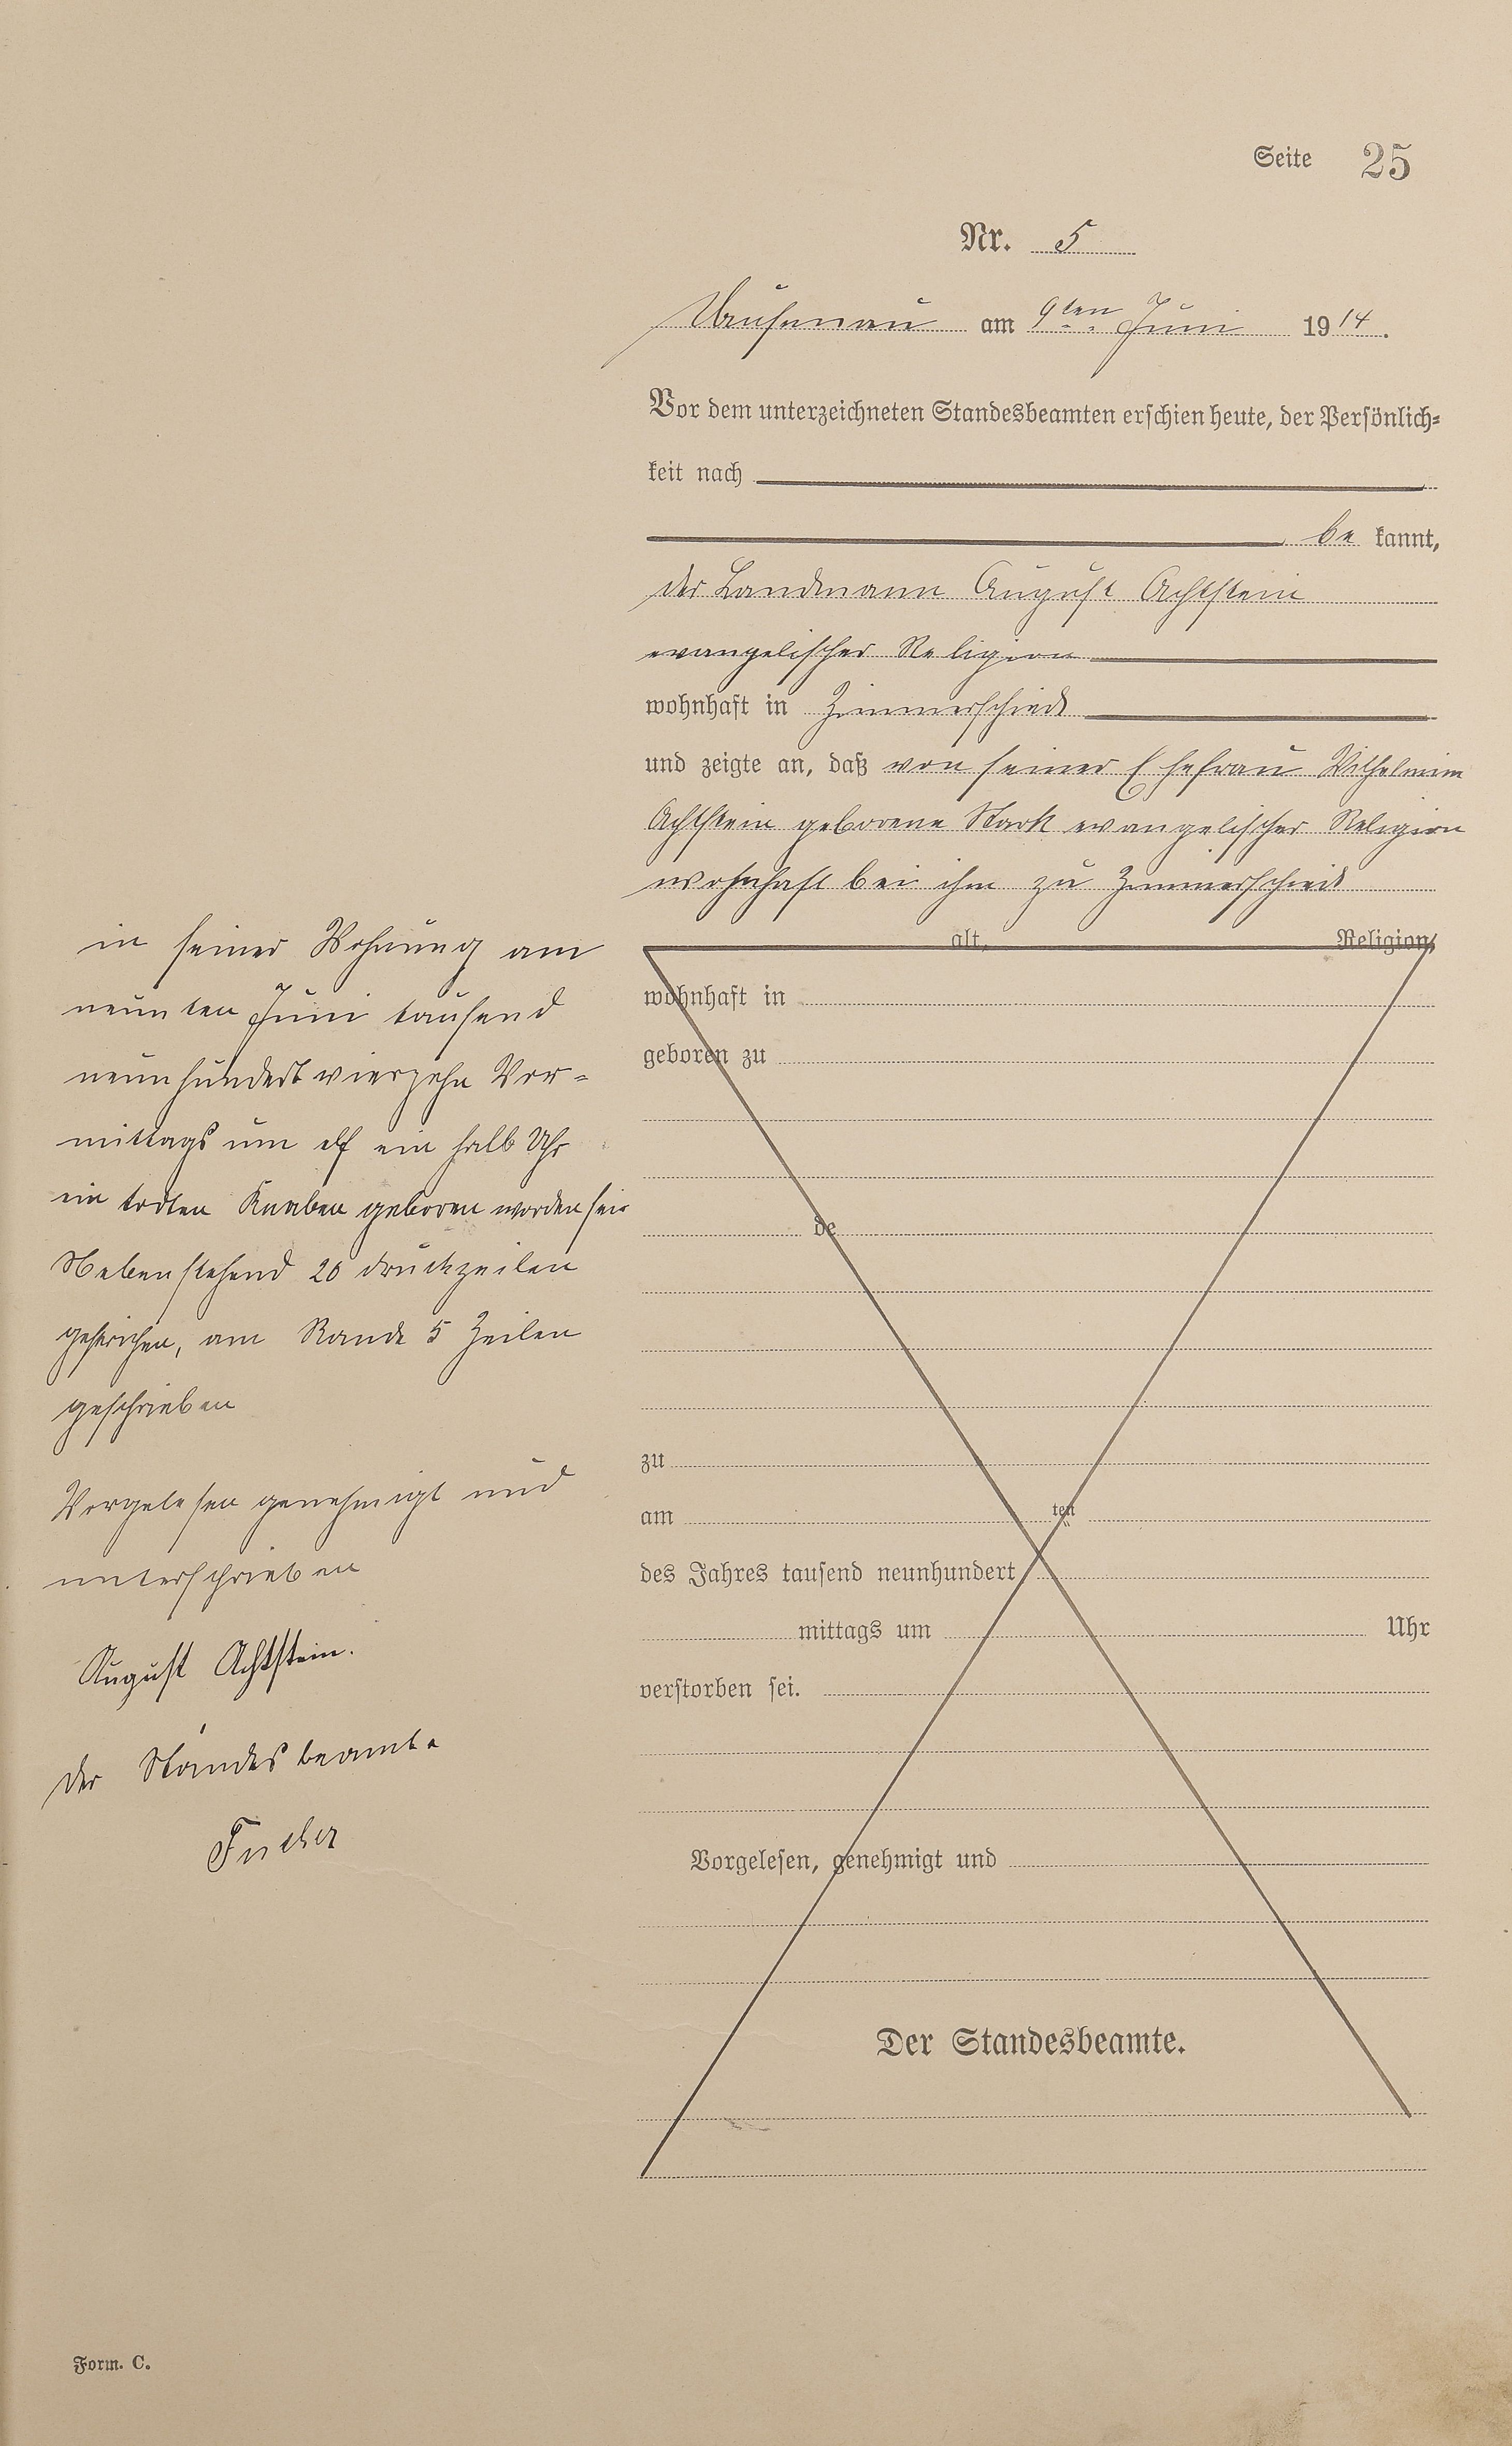 Seite 25
Nr. 5
am 9ten Juni 1914.
Vor dem unterzeichneten Standesbeamten erschien heute, der Persönlich-
keit nach
be kannt,
der Landmann August Achtstein
evangelischer Religion
wohnhaft in Zimmerschied
und zeigte an, daß von seiner Ehefrau Wilhelmine
Achtstein geborene Stark evangelischer Religion
wohnhaft bei ihm zu Zimmerschied
alt, Religion,
wohnhaft in
geboren zu
de
zu
am ten
des Jahres tausend neunhundert
mittags um Uhr
verstorben sei.
Vorgelesen, genehmigt und
Der Standesbeamte.
in seiner Wohnung am
neunten Juni tausend
neunhundert vierzehn Vor-
mittags um elf ein halb Uhr
ein todten Knaben geboren worden sei
Nebenstehend 20 druckzeilen
gestrichen, am Rande 5 Zeilen
geschrieben
Vorgelesen genehmigt und
unterschrieben
August Achtstein.
Der Standesbeamte
Form. C.